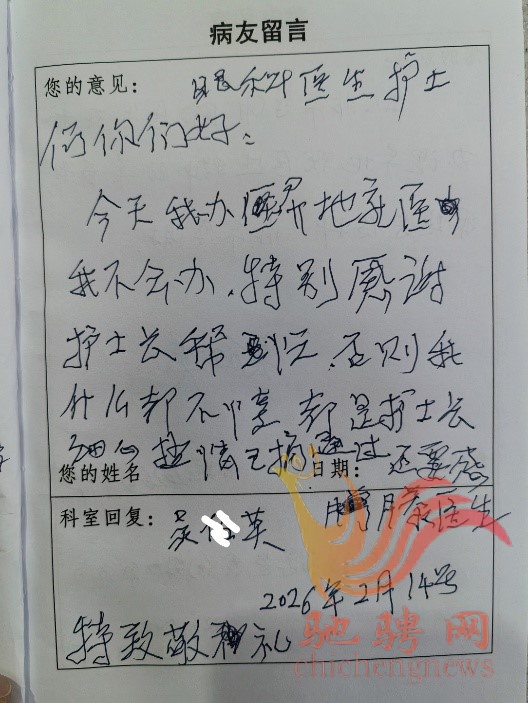 病友留言
您的意见： 眼科医生护士
们你们好：
今天我办 地 医
我不会办，特别感谢
护士长帮 到 ，否则我
什么都不懂 都是护士长
细心 情 还要感
您的姓名 日期：
科室回复： 英 医生
2026年2月14号
特致敬 礼
驰骋网
chichengnews